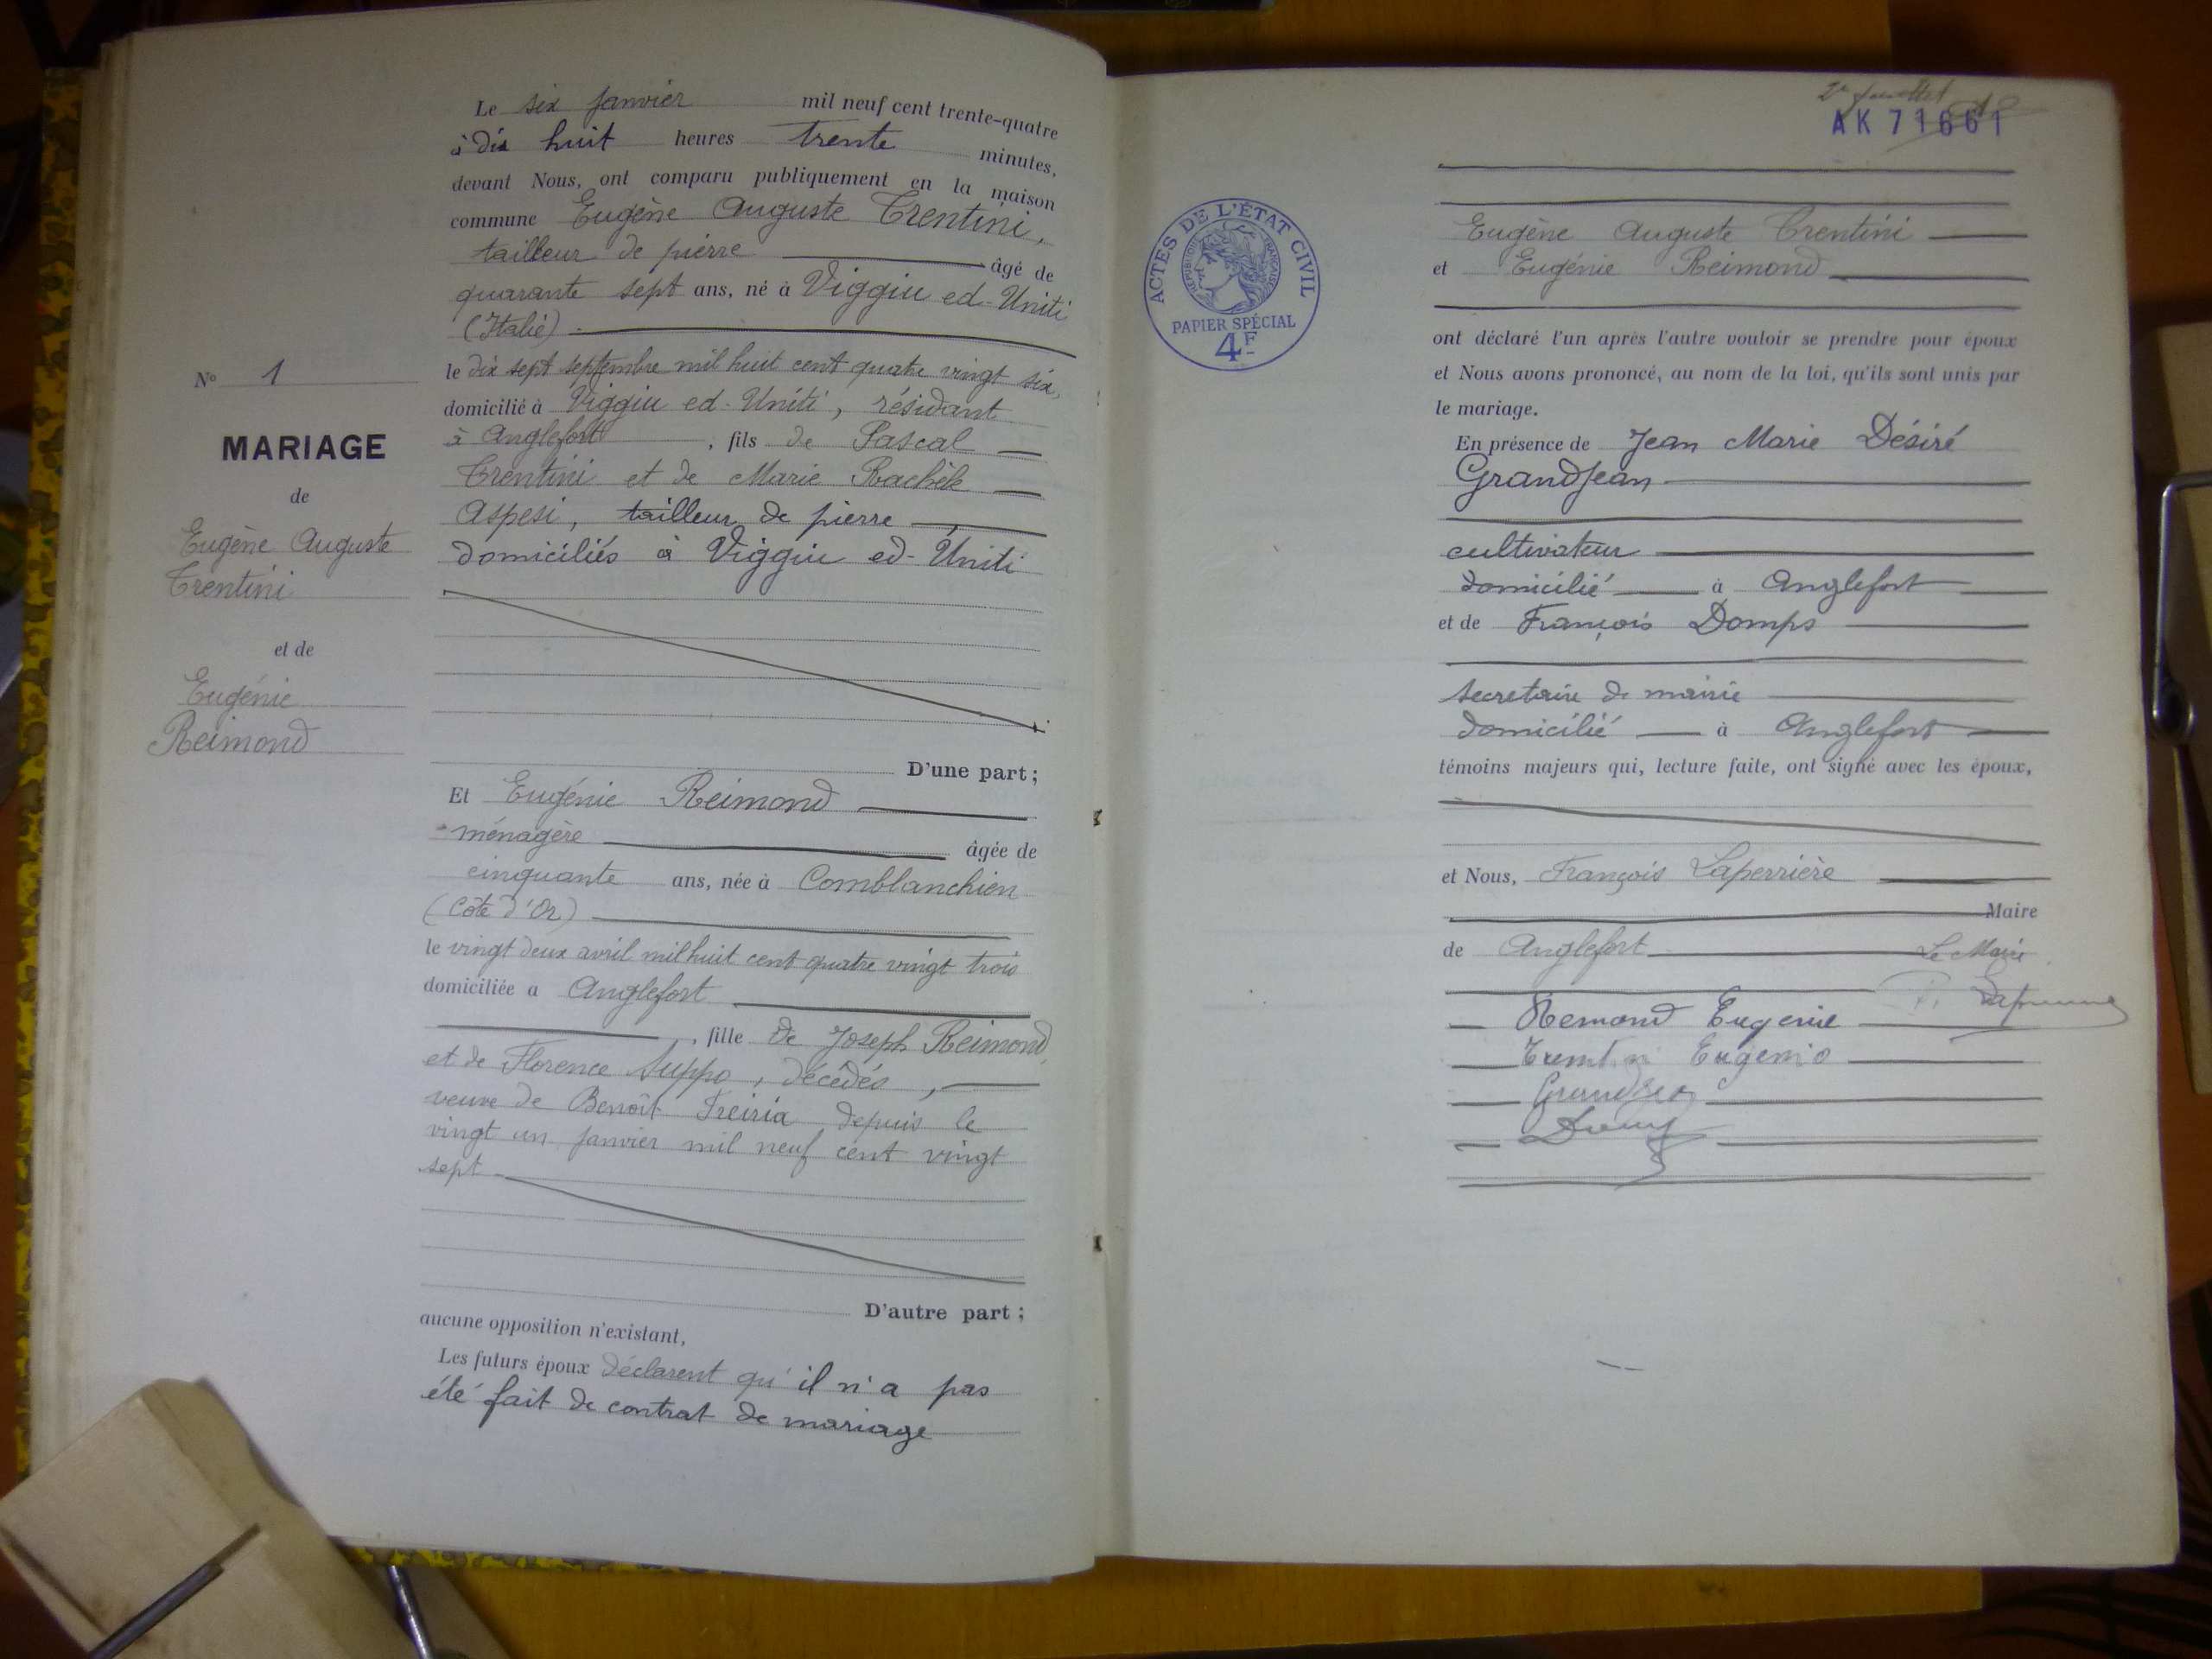 Le six janvier mil neuf cent trente-quatre
à dix huit heures trente minutes,
devant Nous, ont comparu publiquement en la maison
commune Eugène Auguste Trentini,
tailleur de pierre âgé de
quarante sept ans, né à Viggiu ed-Uniti
(Italie)
le dix sept septembre mil huit cent quatre vingt six,
domicilié à Viggiu ed-Uniti, résidant
à Anglefort, fils de Pascal
Trentini et de Marie Rachèle
Aspesi, tailleur de pierre
domiciliés à Viggiu ed-Uniti
D'une part;
Et Eugénie Reimond
ménagère âgée de
cinquante ans, née à Comblanchien
(Côte d'Or)
le vingt deux avril mil huit cent quatre vingt trois
domiciliée a Anglefort
, fille de Joseph Reimond
et de Florence Suppo, décédés,
veuve de Benoît Freiria depuis le
vingt un janvier mil neuf cent vingt
sept
D'autre part;
aucune opposition n'existant,
Les futurs époux déclarent qu'il n'a pas
été fait de contrat de mariage
No 1
MARIAGE
de
Eugène Auguste
Trentini
et de
Eugénie
Reimond
AK 71661
ACTES DE L'ÉTAT CIVIL
RÉPUBLIQUE FRANÇAISE
PAPIER SPÉCIAL
4F
Eugène Auguste Trentini
et Eugénie Reimond
ont déclaré l'un après l'autre vouloir se prendre pour époux
et Nous avons prononcé, au nom de la loi, qu'ils sont unis par
le mariage.
En présence de Jean Marie Désiré
Grandjean
cultivateur
domicilié à Anglefort
et de François Domps
secretaire de mairie
domicilié à Anglefort
témoins majeurs qui, lecture faite, ont signé avec les époux,
et Nous, François Laperrière
Maire
de Anglefort Le Maire
Remond Eugenie
Trentin Eugenio